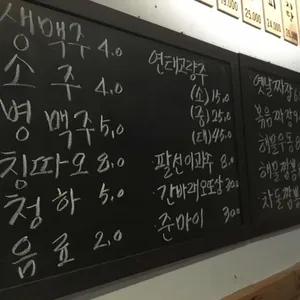 생맥주 4.0
소주 4.0
병맥주 5.0
칭따오 8.0
청하 5.0
음료 2.0
연태고량주
(소) 15.0
(중) 25.0
(대) 45.0
팔선이과주 8.0
간바레오또상 30.0
준마이 30.0
옛날짜장
볶음짜장
해물우동
해물짬뽕
차돌짬뽕
19.000
25.000
24.000
26.000